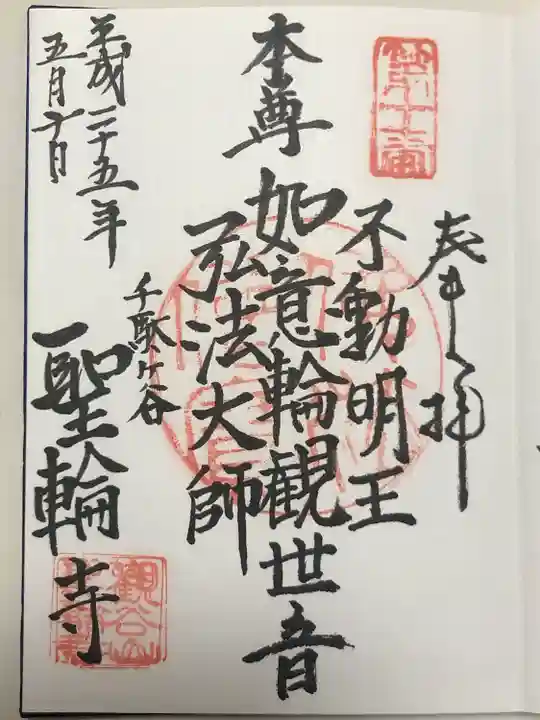 奉拝
不動明王
本尊 如意輪観世音
弘法大師
千駄ケ谷
聖輪寺
平成二十五年
五月十日
観谷山